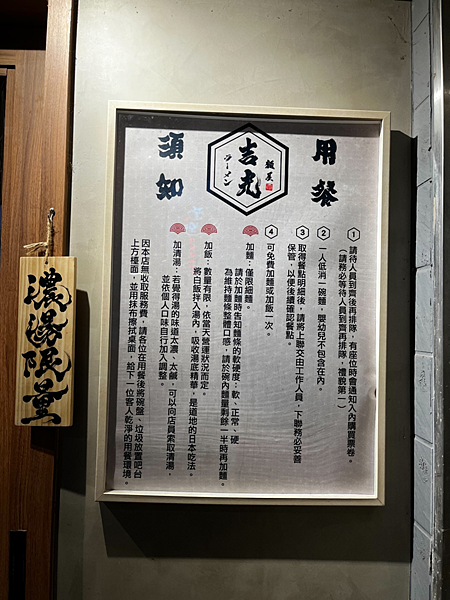 用餐
須知
吉光
ラーメン
①請待人員到齊後再排隊，有座位時會通知入內購買票卷。
（請務必等待人員到齊再排隊，禮貌第一）
②一人低消一碗麵，嬰幼兒不包含在內。
③取得餐點明細後，請將上聯交由工作人員，下聯務必妥善
保管，以便後續確認餐點。
④可免費加麵或加飯一次。
加麵：僅限細麵。
請於加麵時告知麵條的軟硬度：軟、正常、硬
為維持麵條整體口感，請於碗內麵量剩餘一半時再加麵。
加飯：數量有限，依當天營運狀況而定。
將白飯拌入湯內，吸收湯底精華，是道地的日本吃法。
加清湯：若覺得湯的味道太濃、太鹹，可以向店員索取清湯，
並依個人口味自行加入調整。
因本店無收取服務費，請各位在用餐後將碗盤、垃圾放置吧台
上方檯面，並用抹布擦拭桌面，給下一位客人乾淨的用餐環境。
濃湯限量